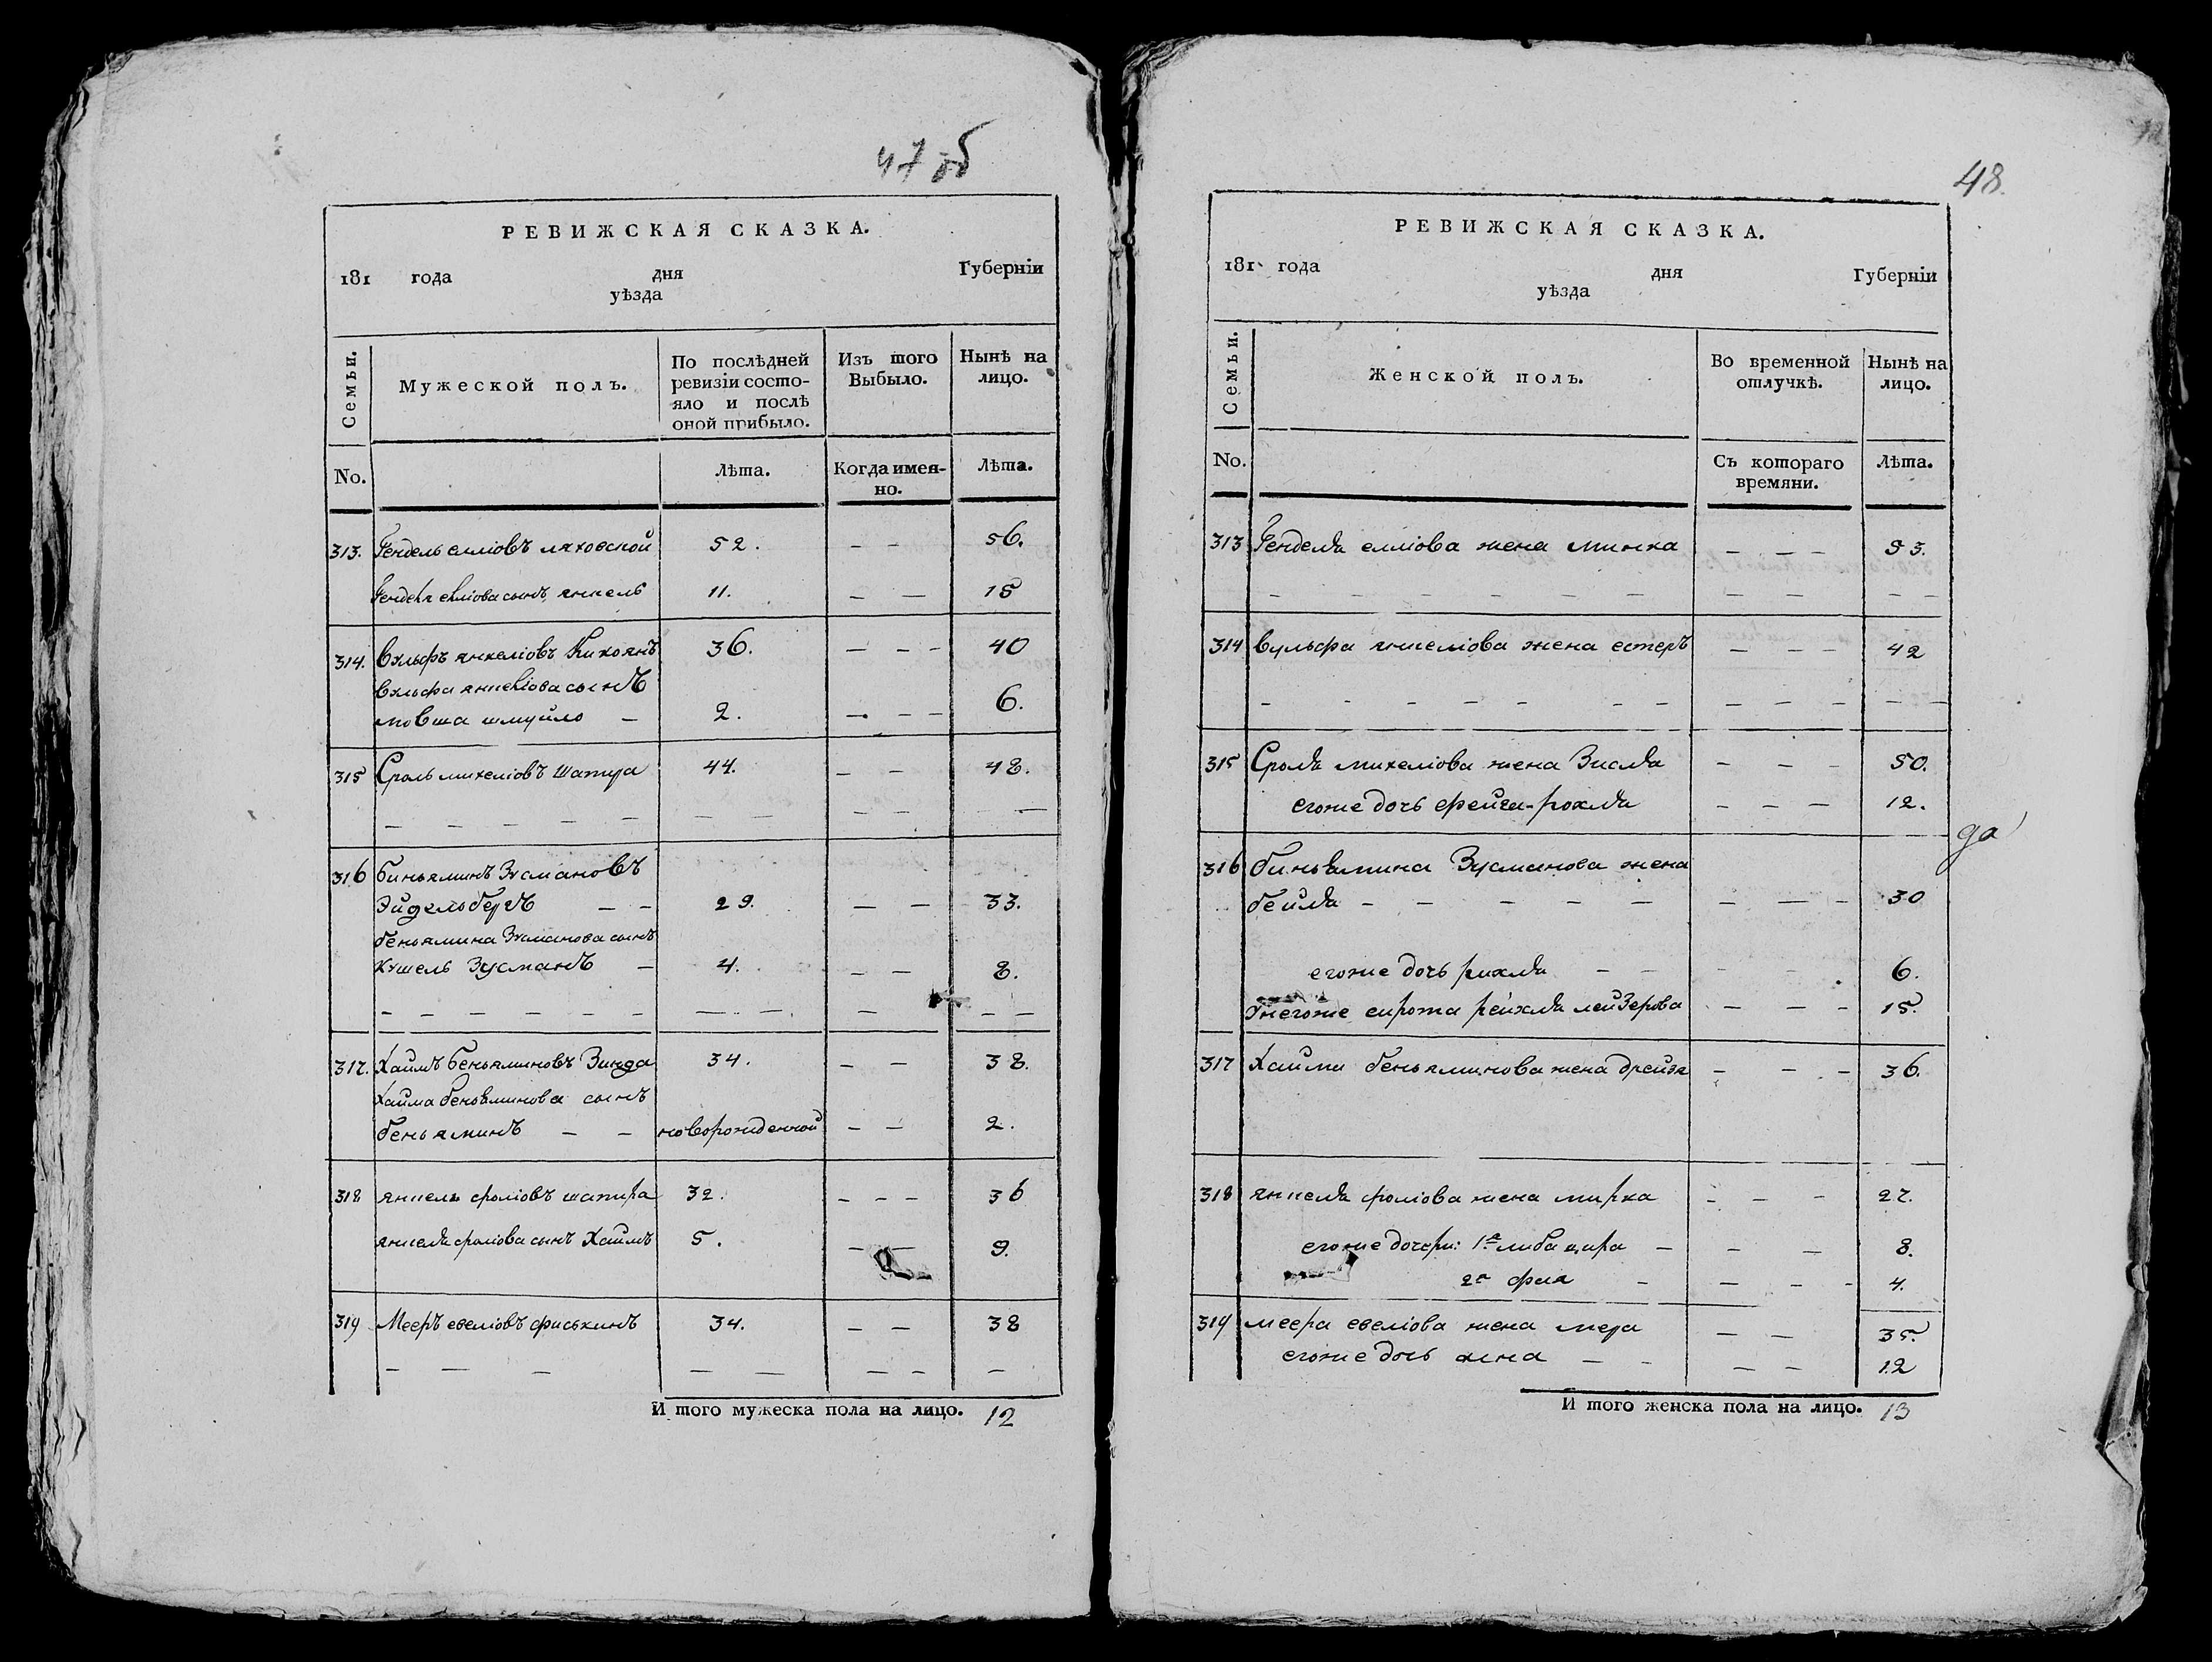 47 об
РЕВИЖСКАЯ СКАЗКА.
181 года дня Губерніи
уѣзда
Семьи.
Мужеской полъ.
По послѣдней ревизіи состо-
яло и послѣ
оной прибыло.
Изъ того
Выбыло.
Нынѣ на
лицо.
No.
Лѣта.
Когда имен-
но.
Лѣта.
313. Гендель елліовъ ляховской 52. – – 56.
Генделя еліова сынъ янкель 11. – – 15
314. Вульфъ янкеліовъ 36. – – – 40
Вульфа янкеліова сынъ
мовша шмуйло – 2. – – – 6.
315 Сроль михеліовъ Шапира 44. – – 48.
– – – – – – – – – –
316 биньяминъ Зусмановъ
Эйдельбергъ – – 29. – – 33.
беньямина Зусманова сынъ
Кушель Зусманъ – 4. – – 8.
– – – – – – – – – – –
317. Хаимъ беньяминовъ Зинда 34. – – 38.
Хаима беньяминова сынъ
беньяминъ – – новорожденной – – 2.
318 янкель сроліовъ шапира 32. – – – 36
янкеля сроліова сынъ Хаимъ 5. – – 9.
319 Мееръ евеліовъ фиськинъ 34. – – 38
– – – – – – – –
И того мужеска пола на лицо. 12
48.
РЕВИЖСКАЯ СКАЗКА.
181 года дня Губерніи
уѣзда
Семьи.
Женской полъ.
Во временной
отлучкѣ.
Нынѣ на
лицо.
No.
Съ котораго
времяни.
Лѣта.
313 Генделя елліова жена минка – – – 53.
– – – – – – – – – – –
314 вульфа янкеліова жена естеръ – – – 42
– – – – – – – – – – – –
315 Сроля михеліова жена Зисля – – – 50.
егоже дочь фейга-рохля – – – 12.
да
316 биньямина Зусманова жена
бейля – – – – – – – – 30
егоже дочь рихля – – – – 6.
Унегоже сирота рейхля лейзерова – – – 15.
317 Хаима беньяминова жена дрейзя – – – 36.
318 янкеля сроліова жена мирка – – – 27.
егоже дочери: 1я либа ципа – – – 8.
2я фея – – – – 4.
319 меера евеліова жена мера – – 35.
егоже дочь хена – – – – 12
И того женска пола на лицо. 13